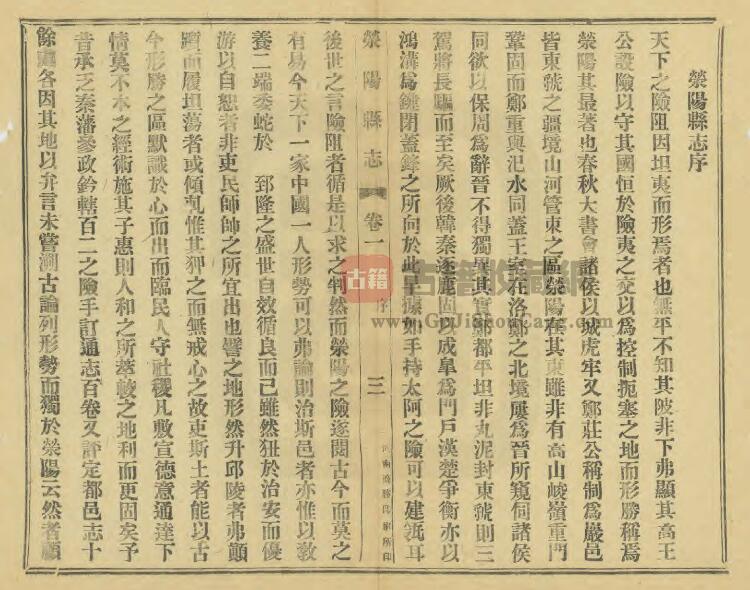 滎陽縣志序
天下之險阻因坦夷而形焉者也無平不知其陂非下弗顯其高王
公設險以守其國恒於險夷之交以爲控制扼塞之地而形勝稱焉
滎陽其最著也春秋大書會諸侯以城虎牢又鄭莊公稱制爲巖邑
皆東虢之疆境山河管束之區滎陽在其東雖非有高山峻嶺重門
鞏固而鄭重與汜水同蓋王室在洛鄭之北境屢爲晉所窺伺諸侯
同欲以保周爲辭晉不得獨展其實鄭都平坦非丸泥封東虢則三
駕將長驅而至矣厥後韓秦逐鹿固以成皐爲門戶漢楚爭衡亦以
鴻溝爲鍵閉蓋鋒之所向於此旱據如手持太阿之險可以建瓴耳
滎陽縣志 卷一 序 三
河南商務印刷所印
後世之言險阻者循是以求之判然而滎陽之險遂閱古今而莫之
有易今天下一家中國一人形勢可以弗論則治斯邑者亦惟以敎
養二端委蛇於 郅隆之盛世自效循良而已雖然狃於治安而優
游以自恕者非吏民師帥之所宜出也譬之地形然升邱陵者弗顚
躓而履坦蕩者或傾軋惟其狎之而無戒心之故吏斯土者能以古
今形勝之區默識於心而出而臨民人守社稷凡敷宣德意通達下
情莫不本之經術施其子惠則人和之所萃較之地利而更固矣予
昔承乏秦藩參政鈐轄百二之險手訂通志百卷又評定都邑志十
餘 各因其地以弁言未嘗溯古論列形勢而獨於滎陽云然者顧
古籍
古籍收藏網
www.GuJiShouCang.com